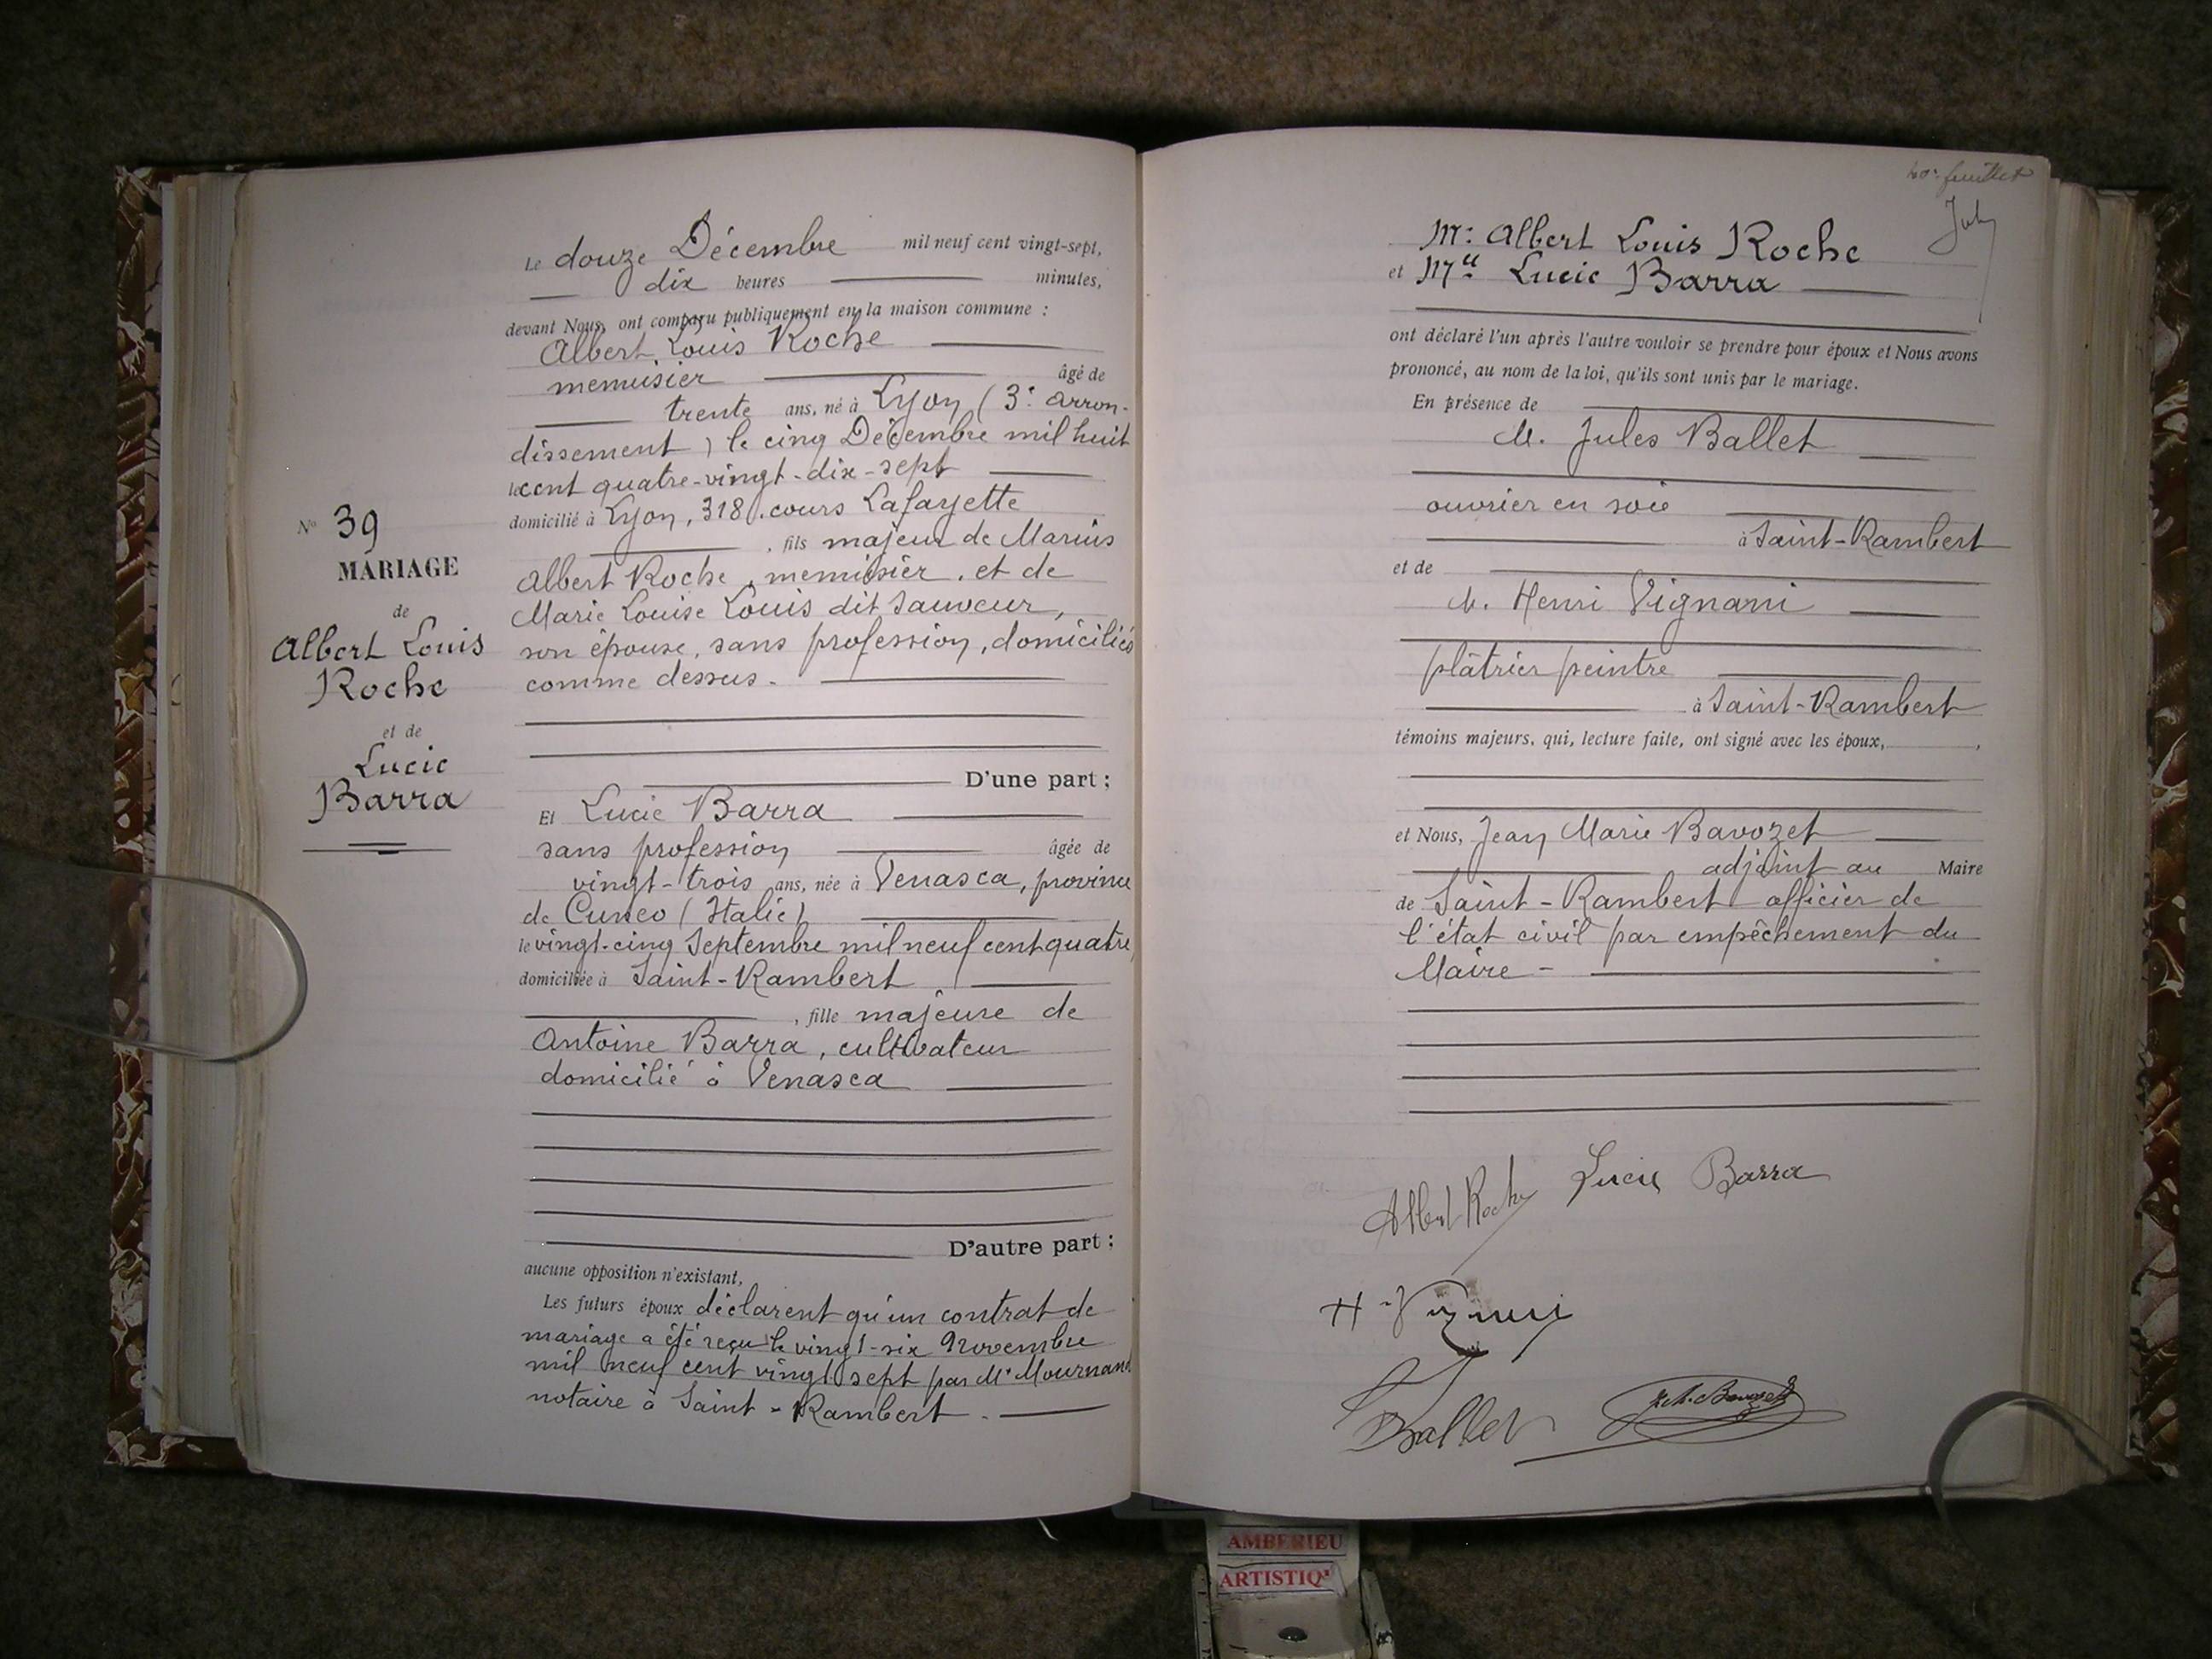 Le douze Décembre mil neuf cent vingt-sept,
dix heures minutes,
devant Nous, ont comparu publiquement en la maison commune :
Albert Louis Roche
menuisier âgé de
trente ans, né à Lyon (3e arron-
dissement) le cinq Décembre mil huit
le cent quatre-vingt-dix-sept
domicilié à Lyon, 318, cours Lafayette
, fils majeur de Marius
Albert Roche, menuisier, et de
Marie Louise Louis dit Sauveur,
son épouse, sans profession, domiciliés
comme dessus.
D'une part ;
Et Lucie Barra
sans profession âgée de
vingt-trois ans, née à Venasca, province
de Cuneo (Italie)
le vingt-cinq Septembre mil neuf cent quatre,
domiciliée à Saint-Rambert
, fille majeure de
Antoine Barra, cultivateur
domicilié à Venasca
D'autre part ;
aucune opposition n'existant,
Les futurs époux déclarent qu'un contrat de
mariage a été reçu le vingt-six Novembre
mil neuf cent vingt sept par Me Mournand
notaire à Saint-Rambert.
No 39
MARIAGE
de
Albert Louis
Roche
et de
Lucie
Barra
40e feuillet
Mr Albert Louis Roche
et Mlle Lucie Barra
ont déclaré l'un après l'autre vouloir se prendre pour époux et Nous avons
prononcé, au nom de la loi, qu'ils sont unis par le mariage.
En présence de
M. Jules Ballet
ouvrier en soie
à Saint-Rambert
et de
M. Henri Vignani
plâtrier peintre
à Saint-Rambert
témoins majeurs, qui, lecture faite, ont signé avec les époux, ,
et Nous, Jean Marie Bavozet
adjoint au Maire
de Saint-Rambert officier de
l'état civil par empêchement du
Maire -
Albert Roche Lucie Barra
Ballet
J.M. Bavozet
AMBERIEU
ARTISTIQ